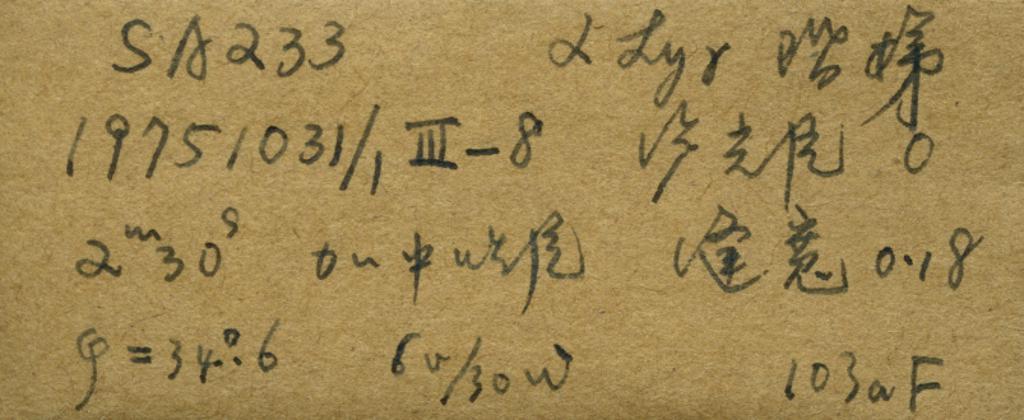 SA233 α Lyr 阶梯
19751031/1 Ⅲ-8 滤光片 0
2ᵐ30ˢ 加中 缝宽 0.18
φ=34°.6 6v/30W 103aF